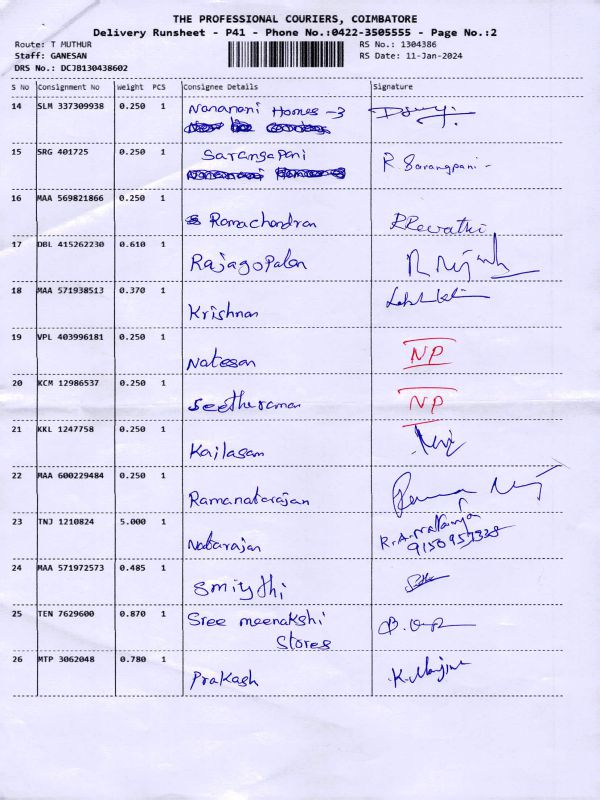 THE PROFESSIONAL COURIERS, COIMBATORE
Delivery Runsheet - P41 - Phone No.:0422-3505555 - Page No.:2
Route: T MUTHUR RS No.: 1304386
Staff: GANESAN RS Date: 11-Jan-2024
DRS No.: DCJB130438602
S No Consignment No Weight PCS Consignee Details Signature
14 SLM 337309938 0.250 1 Nananani Homes -3
15 SRG 401725 0.250 1 Sarangapani R. Sarangpani
16 MAA 569821866 0.250 1 Ramachandran R Revathi
17 DBL 415262230 0.610 1 Rajagopalan
18 MAA 571938513 0.370 1 Krishnan
19 VPL 403996181 0.250 1 Natesan NP
20 KCM 12986537 0.250 1 Seetheraman NP
21 KKL 1247758 0.250 1 Kailasam
22 MAA 600229484 0.250 1 Ramanatarajan
23 TNJ 1210824 5.000 1 Natarajan
24 MAA 571972573 0.485 1 Smiythi
25 TEN 7629600 0.870 1 Sree meenakshi
Stores
26 MTP 3062048 0.780 1 Prakash